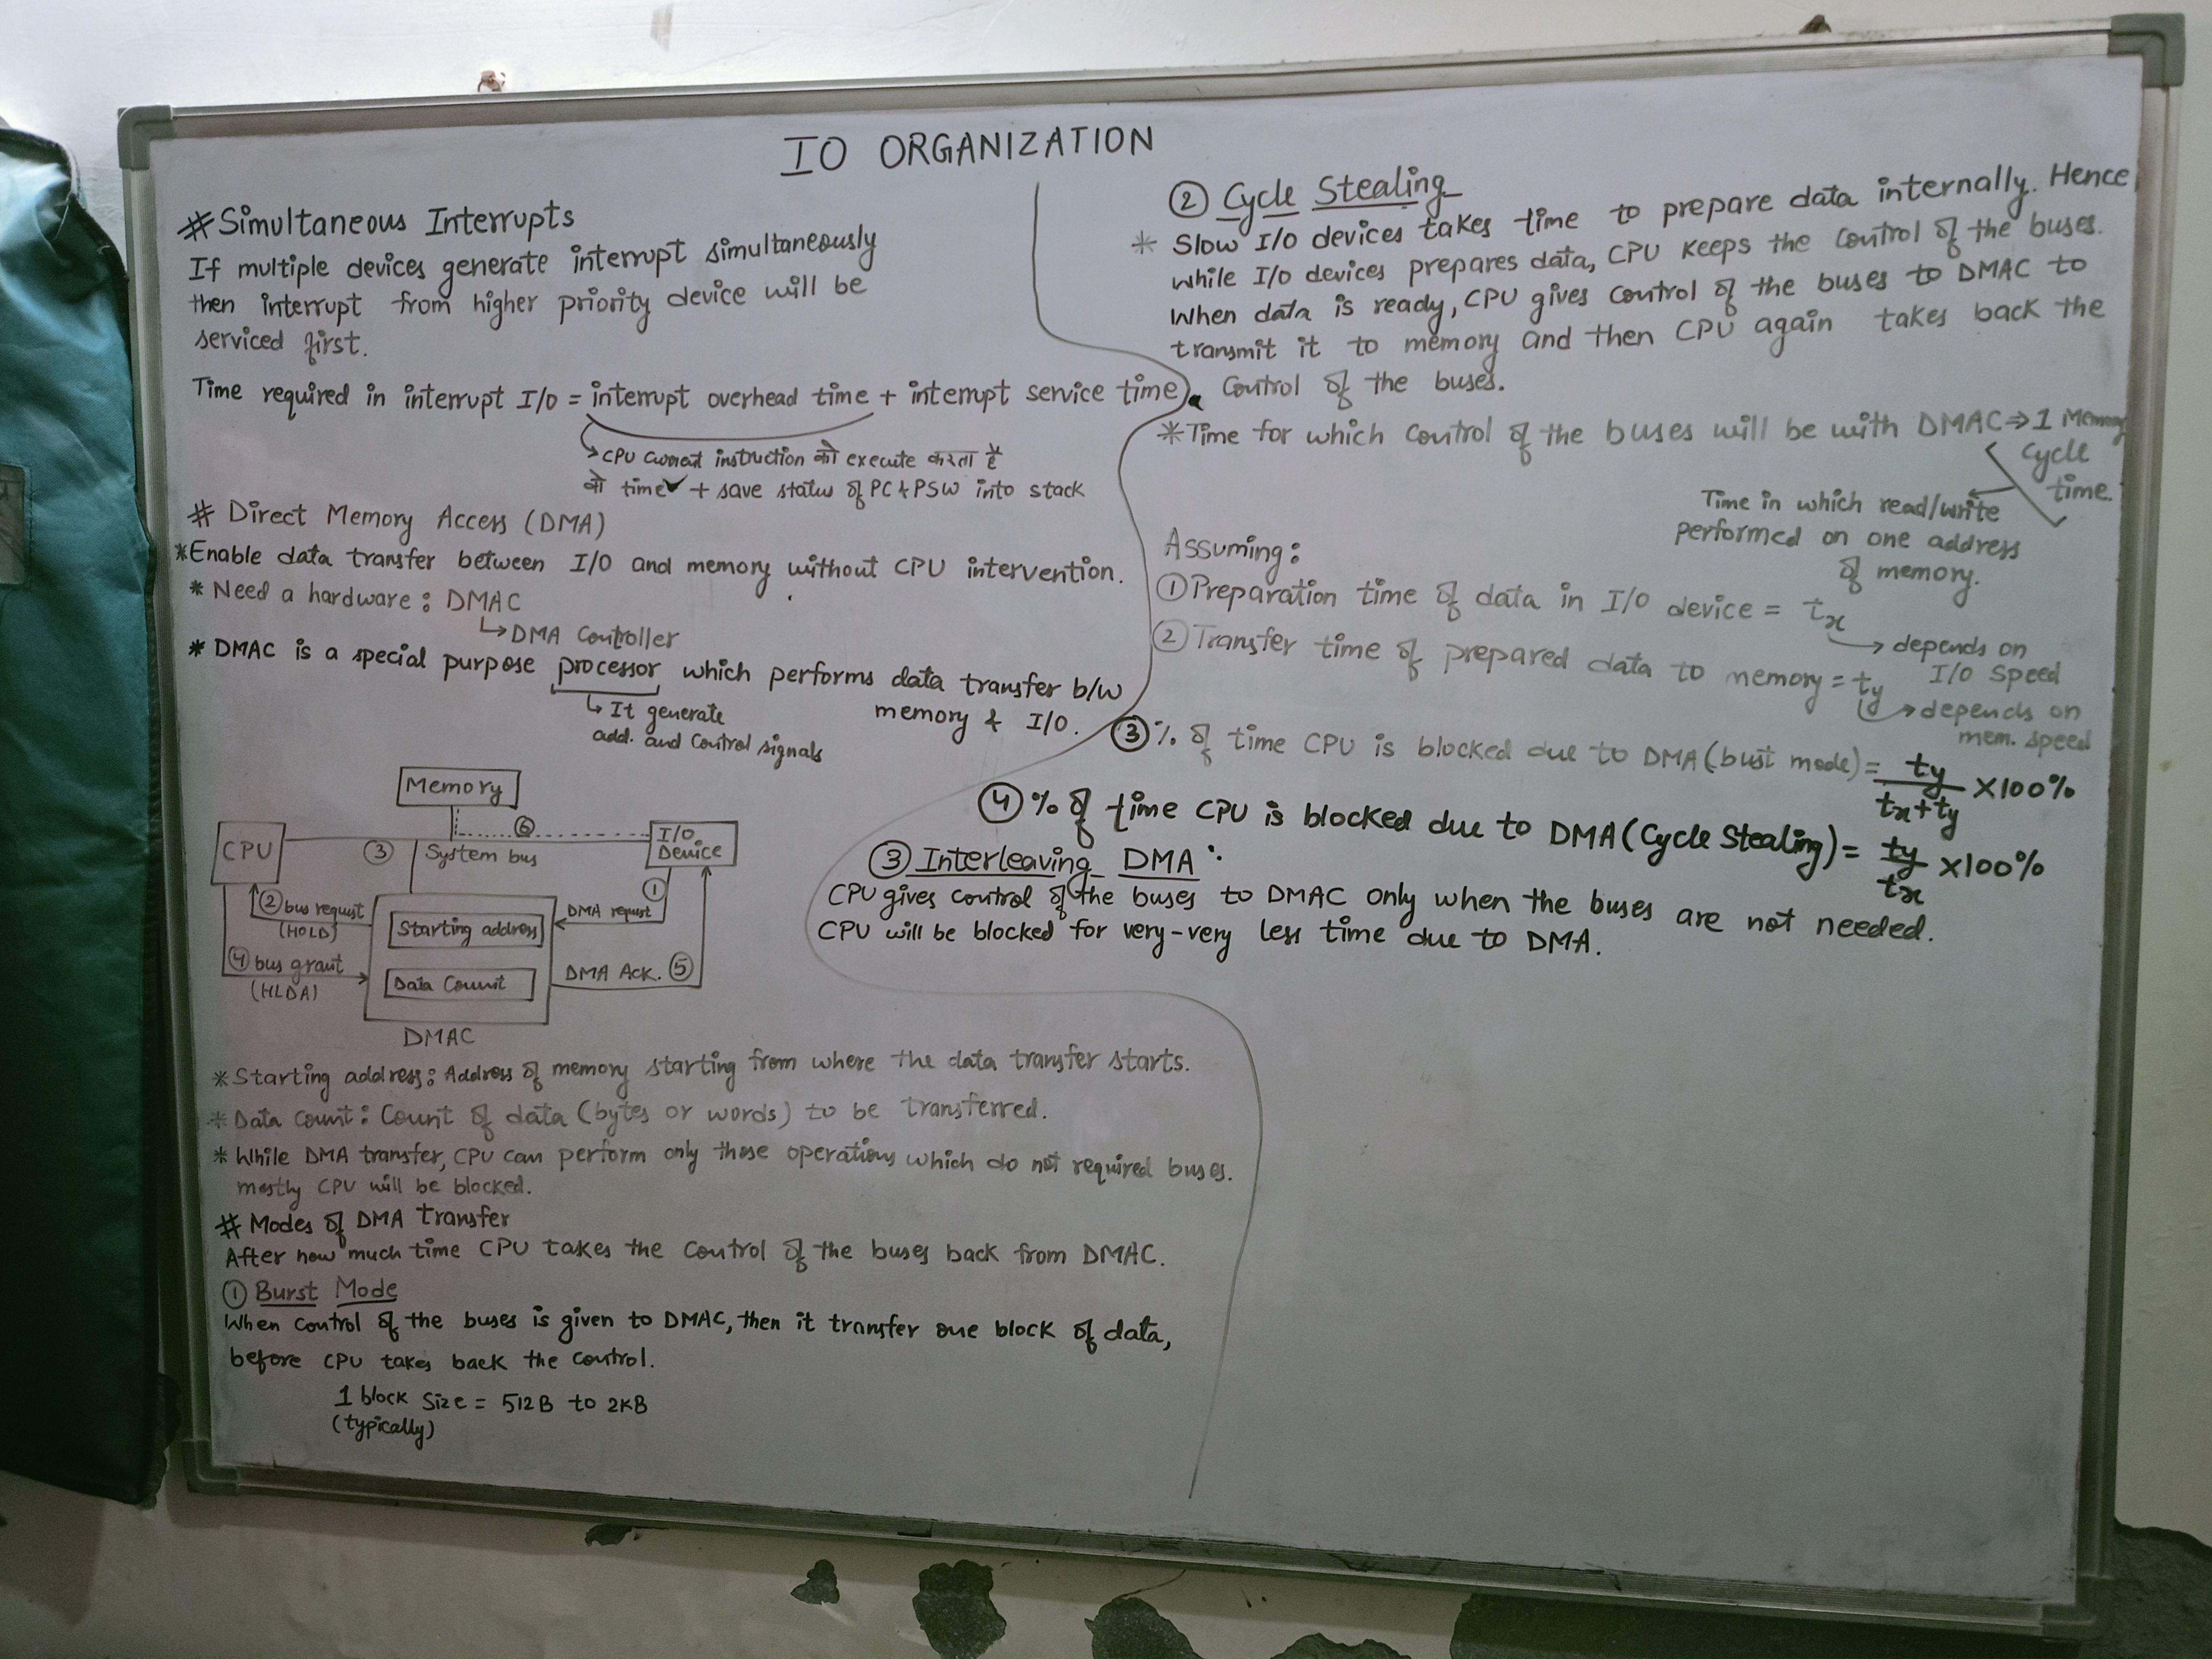 IO ORGANIZATION
# Simultaneous Interrupts
If multiple devices generate interrupt simultaneously
then interrupt from higher priority device will be
serviced first.
Time required in interrupt I/O = interrupt overhead time + interrupt service time
CPU current instruction को execute करता है
वो time + save status of PC & PSW into stack
# Direct Memory Access (DMA)
* Enable data transfer between I/O and memory without CPU intervention.
* Need a hardware : DMAC
DMA Controller
* DMAC is a special purpose processor which performs data transfer b/w
memory & I/O.
It generate
add. and control signals
Memory
⑥
I/O Device
CPU
③
System bus
①
② bus request
(HOLD)
DMA request
Starting address
④ bus grant
(HLDA)
DMA Ack. ⑤
Data Count
DMAC
* Starting address : Address of memory starting from where the data transfer starts.
* Data Count : Count of data (bytes or words) to be transferred.
* While DMA transfer, CPU can perform only those operations which do not required buses.
mostly CPU will be blocked.
# Modes of DMA transfer
After how much time CPU takes the control of the buses back from DMAC.
① Burst Mode
When control of the buses is given to DMAC, then it transfer one block of data,
before CPU takes back the control.
1 block size = 512B to 2KB
(typically)
② Cycle Stealing
* Slow I/O devices takes time to prepare data internally. Hence
while I/O devices prepares data, CPU keeps the control of the buses.
When data is ready, CPU gives control of the buses to DMAC to
transmit it to memory and then CPU again takes back the
control of the buses.
* Time for which control of the buses will be with DMAC ⇒ 1 Memory
cycle
time.
Time in which read/write
performed on one address
of memory.
Assuming :
① Preparation time of data in I/O device = tx
depends on
I/O speed
② Transfer time of prepared data to memory = ty
depends on
mem. speed
③ % of time CPU is blocked due to DMA (bust mode) = ty/(tx+ty) × 100%
④ % of time CPU is blocked due to DMA (Cycle Stealing) = ty/tx × 100%
③ Interleaving DMA :
CPU gives control of the buses to DMAC only when the buses are not needed.
CPU will be blocked for very-very less time due to DMA.